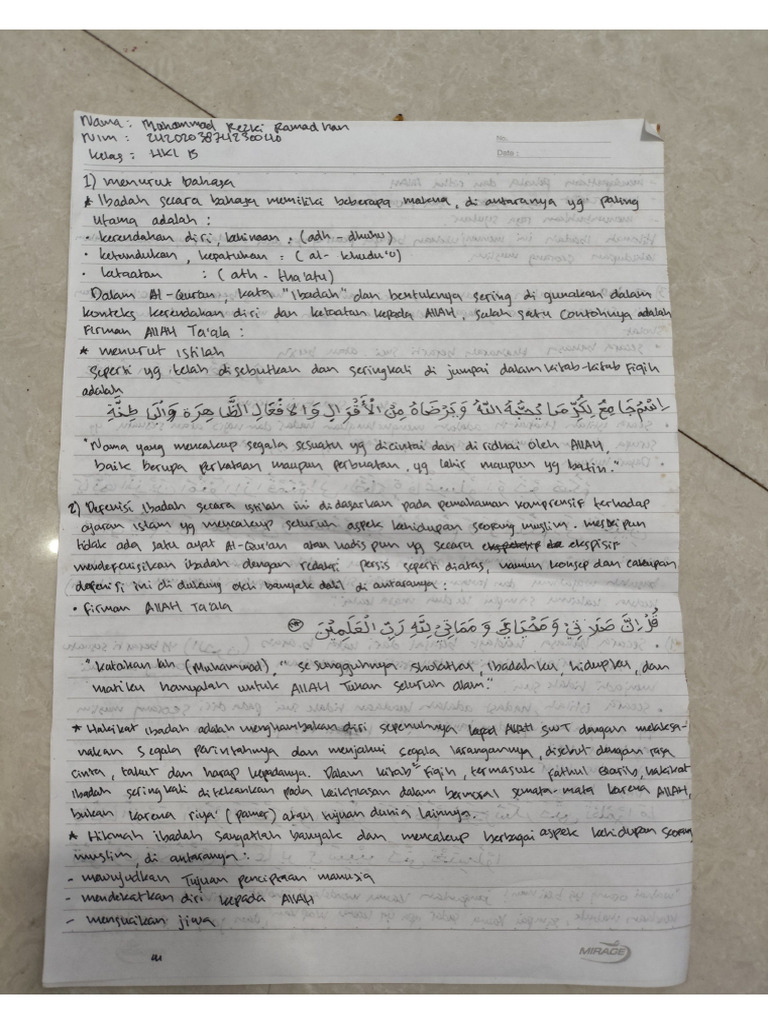 Nama : Mohammad Rezki Ramadhan
NIM : 2420203874230040
Kelas : HKI B
No.
Date :
1) menurut bahasa
* Ibadah secara bahasa memiliki beberapa makna, di antaranya yg paling
utama adalah :
• kerendahan diri, kehinaan : (adh - dhuhu)
• ketundukan, kepatuhan : (al- khudu'u)
• ketaatan : (ath - tha'atu)
Dalam Al-Qur'an, kata "Ibadah" dan bentuknya sering di gunakan dalam
konteks kerendahan diri dan ketaatan kepada Allah, salah satu contohnya adalah
Firman Allah Ta'ala :
* menurut Istilah
Seperti yg telah disebutkan dan seringkali di jumpai dalam kitab-kitab Fiqih
adalah
اِسْمٌ جَامِعٌ لِكُلِّ مَا يُحِبُّهُ اللّٰهُ وَيَرْضَاهُ مِنَ الْأَقْوَالِ وَالْأَفْعَالِ الظَّاهِرَةِ وَالْبَاطِنَةِ
"Nama yang mencakup segala sesuatu yg dicintai dan di ridhai oleh Allah,
baik berupa perkataan maupun perbuatan, yg lahir maupun yg batin."
2) Defenisi ibadah secara istilah ini didasarkan pada pemahaman komprensif terhadap
ajaran Islam yg mencakup seluruh aspek kehidupan seorang muslim. meskipun
tidak ada satu ayat Al-Qur'an atau hadis pun yg secara ekspisif
mendefinisikan ibadah dengan redaksi persis seperti diatas, namun konsep dan cakupan
defenisi ini di dukung oleh banyak dalil di antaranya :
• Firman Allah Ta'ala
قُلْ اِنَّ صَلَاتِيْ وَمَحْيَايَ وَمَمَاتِيْ لِلّٰهِ رَبِّ الْعٰلَمِيْنَ
"Katakanlah (Muhammad), "sesungguhnya sholatku, ibadahku, hidupku, dan
matiku hanyalah untuk Allah Tuhan seluruh alam."
* Hakikat ibadah adalah menghambakan diri sepenuhnya kepad Allah SWT dengan melaksa-
nakan segala perintahnya dan menjauhi segala larangannya, disebut dengan rasa
cinta, takut dan harap kepadanya. Dalam kitab² Fiqih, termasuk Fathul Qarib, hakikat
ibadah seringkali ditekankan pada keikhlasan dalam bermoral semata-mata karena Allah,
bukan karena riya' (pamer) atau tujuan dunia lainnya.
* Hikmah ibadah sangatlah banyak dan mencakup berbagai aspek kehidupan seorang
muslim, di antaranya :
- mewujudkan Tujuan penciptaan manusia
- mendekatkan diri kepada Allah
- mensucikan jiwa
MIRAGE